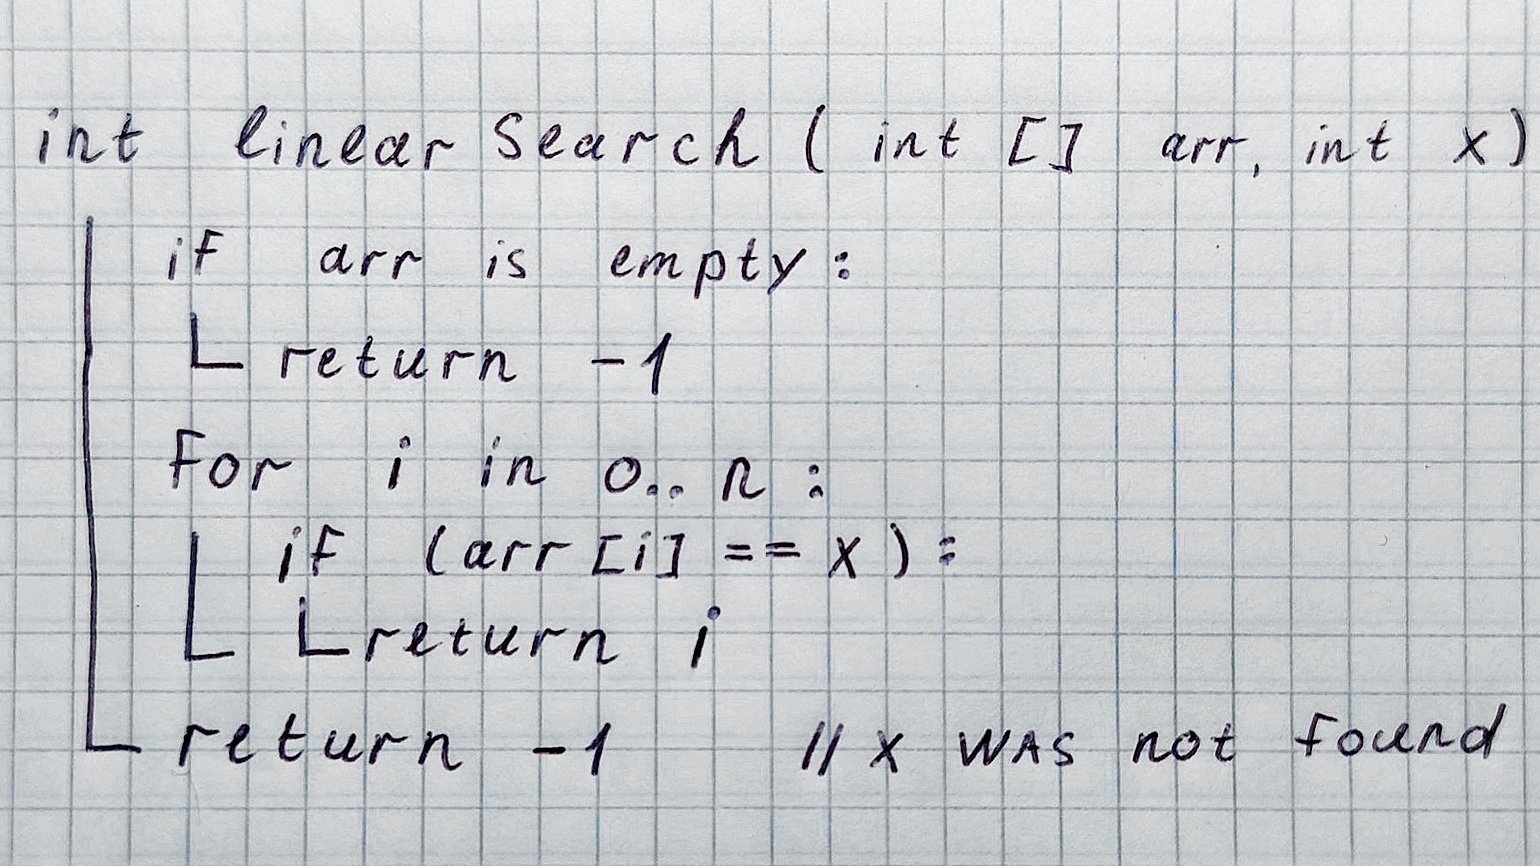 int linearSearch ( int [] arr, int x )
if arr is empty :
return -1
for i in 0.. n :
if (arr [i] == x ) :
return i
return -1 // x was not found